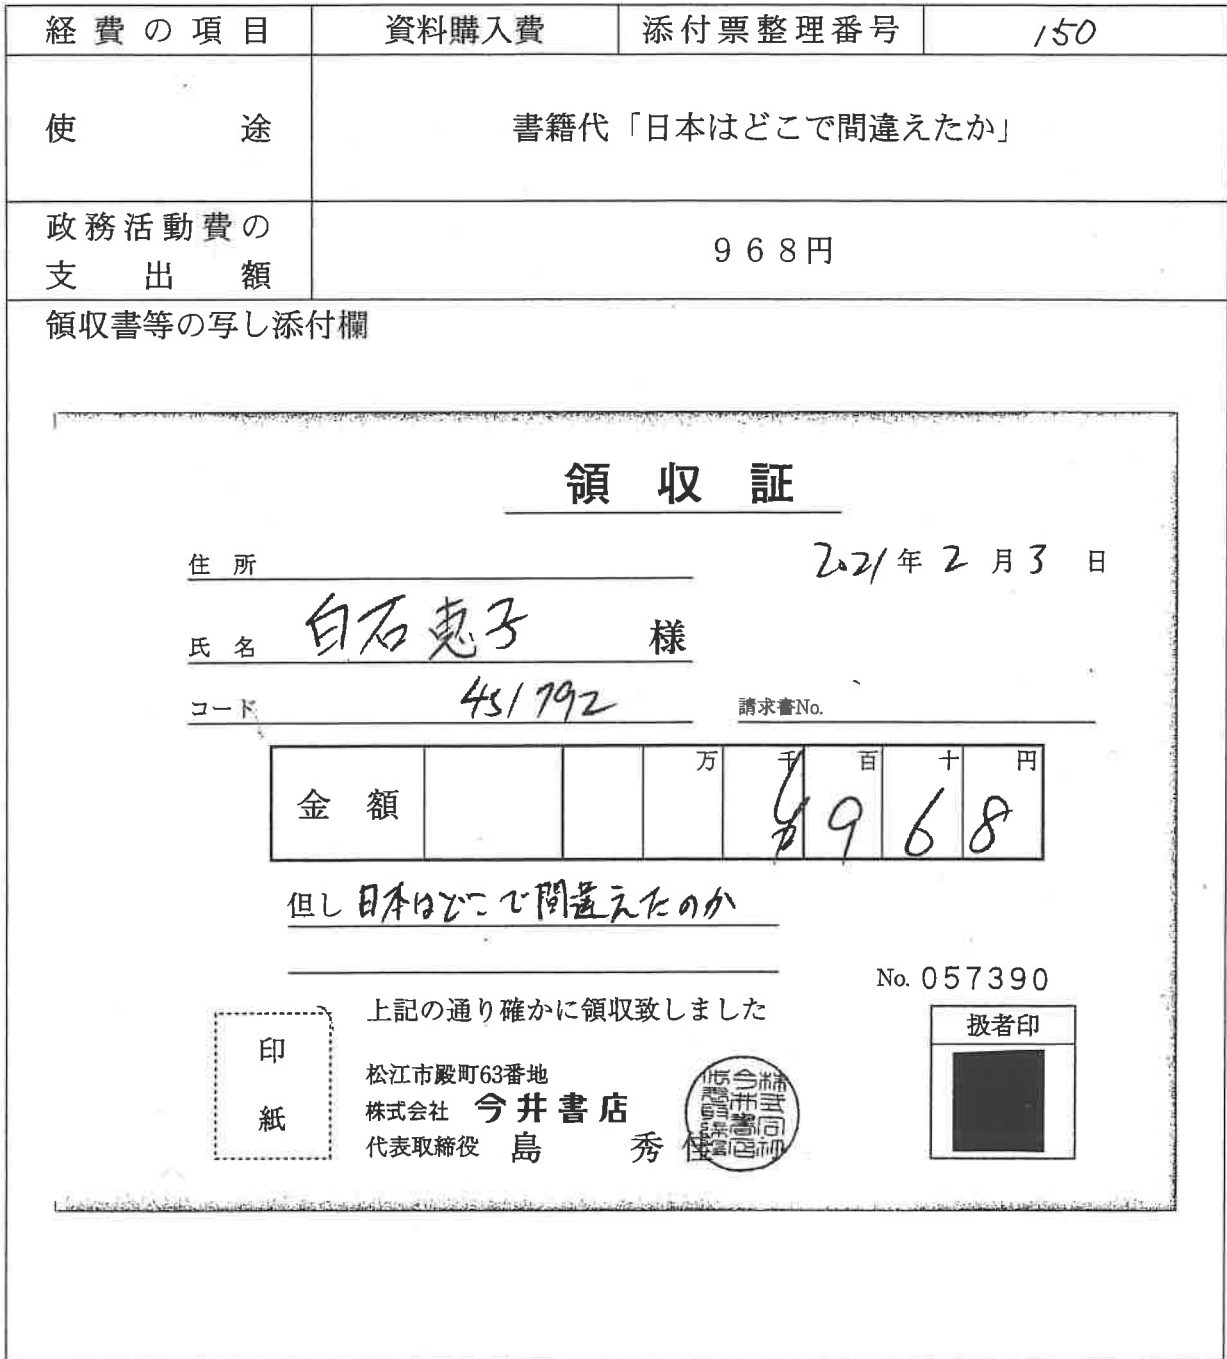 経費の項目 資料購入費 添付票整理番号 150
使途 書籍代「日本はどこで間違えたか」
政務活動費の
支出額 968円
領収書等の写し添付欄
領収証
住所 2021年2月3日
氏名 白石恵子 様
コード 451792 請求書No.
金額 万千百十円
968
但し 日本はどこで間違えたのか
No. 057390
上記の通り確かに領収致しました
扱者印
印紙
松江市殿町63番地
株式会社 今井書店
代表取締役 島 秀佳